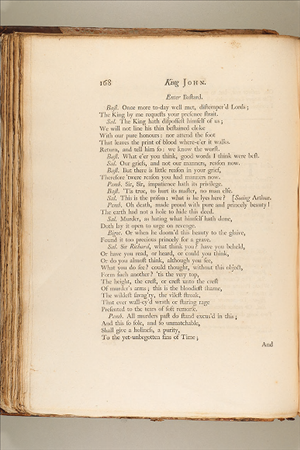 168 King JOHN.
Enter Bastard.
Bast. Once more to-day well met, distemper'd Lords;
The King by me requests your presence strait.
Sal. The King hath dispossest himself of us;
We will not line his thin bestained cloke
With our pure honours: not attend the foot
That leaves the print of blood where-e'er it walks.
Return, and tell him so: we know the worst.
Bast. What e'er you think, good words I think were best.
Sal. Our griefs, and not our manners, reason now.
Bast. But there is little reason in your grief,
Therefore 'twere reason you had manners now.
Pemb. Sir, Sir, impatience hath its privilege.
Bast. 'Tis true, to hurt its master, no man else.
Sal. This is the prison: what is he lyes here? [Seeing Arthur.
Pemb. Oh death, made proud with pure and princely beauty!
The earth had not a hole to hide this deed.
Sal. Murder, as hating what himself hath done,
Doth lay it open to urge on revenge.
Bigot. Or when he doom'd this beauty to the grave,
Found it too precious princely for a grave.
Sal. Sir Richard, what think you? have you beheld,
Or have you read, or heard, or could you think,
Or do you almost think, although you see,
What you do see? could thought, without this object,
Form such another? 'tis the very top,
The height, the crest, or crest unto the crest
Of murder's arms; this is the bloodiest shame,
The wildest savag'ry, the vilest stroak,
That ever wall-ey'd wrath or staring rage
Presented to the tears of soft remorse.
Pemb. All murders past do stand excus'd in this;
And this so sole, and so unmatchable,
Shall give a holiness, a purity,
To the yet-unbegotten sins of Time;
And